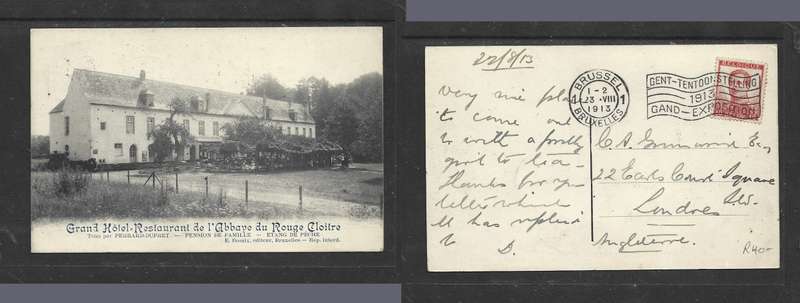 Grand Hôtel-Restaurant de l'Abbaye du Rouge Cloître
Tenu par PERRARD-DUPRET. — PENSION DE FAMILLE — ETANG DE PÊCHE
editeur, Bruxelles — Rep. interd.
22/8/13
Very nice place
to come out
to with a
to tea.
Thanks for your
letter which
M has replied
to D.
BRUSSEL
1 1-2 1
23 VIII
1913
BRUXELLES
GENT-TENTOONSTELLING
1913
GAND-EXPOSITION
BELGIQUE
Esq
22 Earls Court Square
S.W.
Londres
Angleterre.
R40-